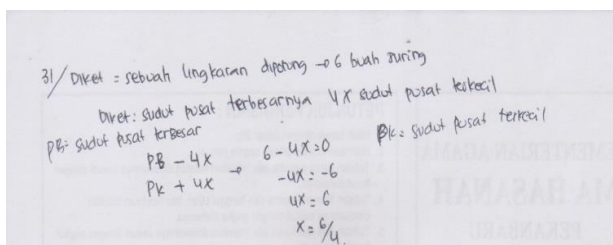 31/ Diket = sebuah lingkaran dipotong → 6 buah juring
Diket : sudut pusat terbesarnya 4x sudut pusat terkecil
PB = sudut pusat terbesar
Pk = sudut pusat terkecil
PB - 4x → 6 - 4x = 0
Pk + 4x
-4x = -6
4x = 6
x = 6/4